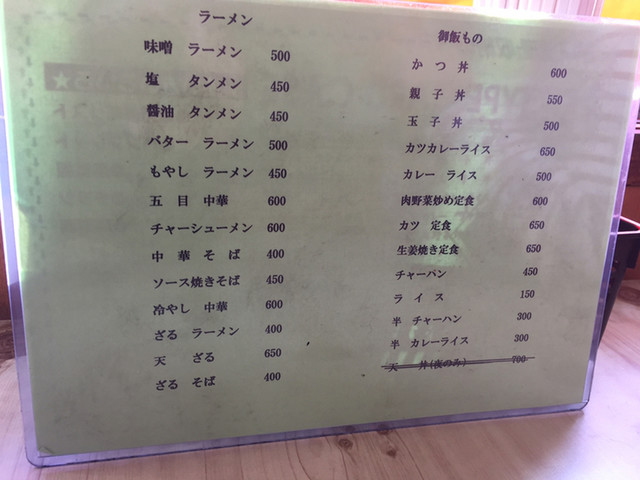 ラーメン
味噌 ラーメン 500
塩 タンメン 450
醤油 タンメン 450
バター ラーメン 500
もやし ラーメン 450
五目 中華 600
チャーシューメン 600
中華そば 400
ソース焼きそば 450
冷やし 中華 600
ざる ラーメン 400
天 ざる 650
ざる そば 400
御飯もの
かつ丼 600
親子丼 550
玉子丼 500
カツカレーライス 650
カレー ライス 500
肉野菜炒め定食 600
カツ 定食 650
生姜焼き定食 650
チャーハン 450
ライス 150
半 チャーハン 300
半 カレーライス 300
天 丼(夜のみ) 700